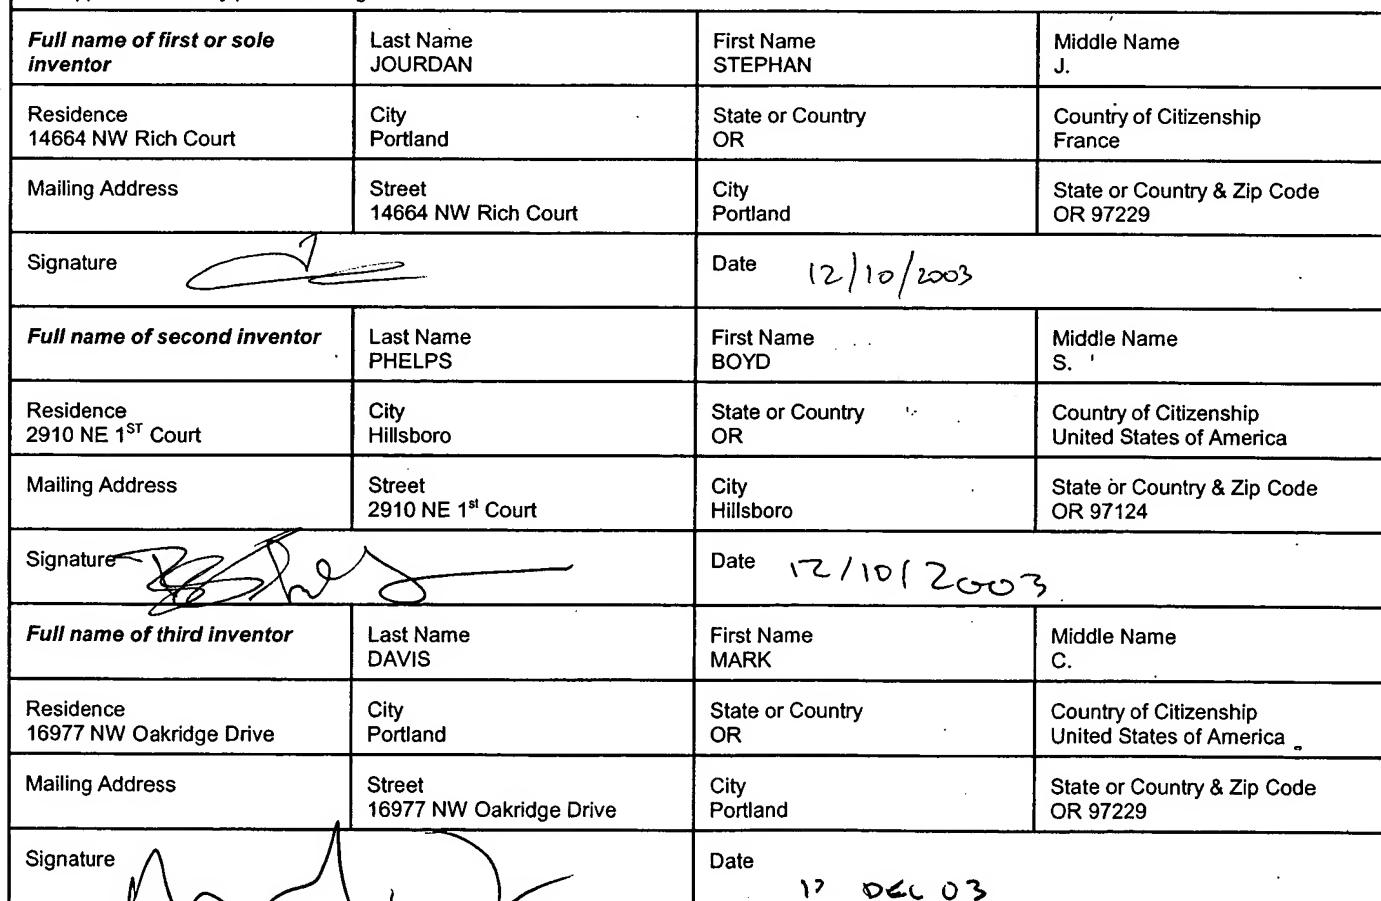 Full name of first or sole inventor Last Name JOURDAN First Name STEPHAN Middle Name J.
Residence 14664 NW Rich Court City Portland State or Country OR Country of Citizenship France
Mailing Address Street 14664 NW Rich Court City Portland State or Country & Zip Code OR 97229
Signature Date 12/10/2003
Full name of second inventor Last Name PHELPS First Name BOYD Middle Name S.
Residence 2910 NE 1ST Court City Hillsboro State or Country OR Country of Citizenship United States of America
Mailing Address Street 2910 NE 1st Court City Hillsboro State or Country & Zip Code OR 97124
Signature Date 12/10/2003
Full name of third inventor Last Name DAVIS First Name MARK Middle Name C.
Residence 16977 NW Oakridge Drive City Portland State or Country OR Country of Citizenship United States of America
Mailing Address Street 16977 NW Oakridge Drive City Portland State or Country & Zip Code OR 97229
Signature Date DEC 03